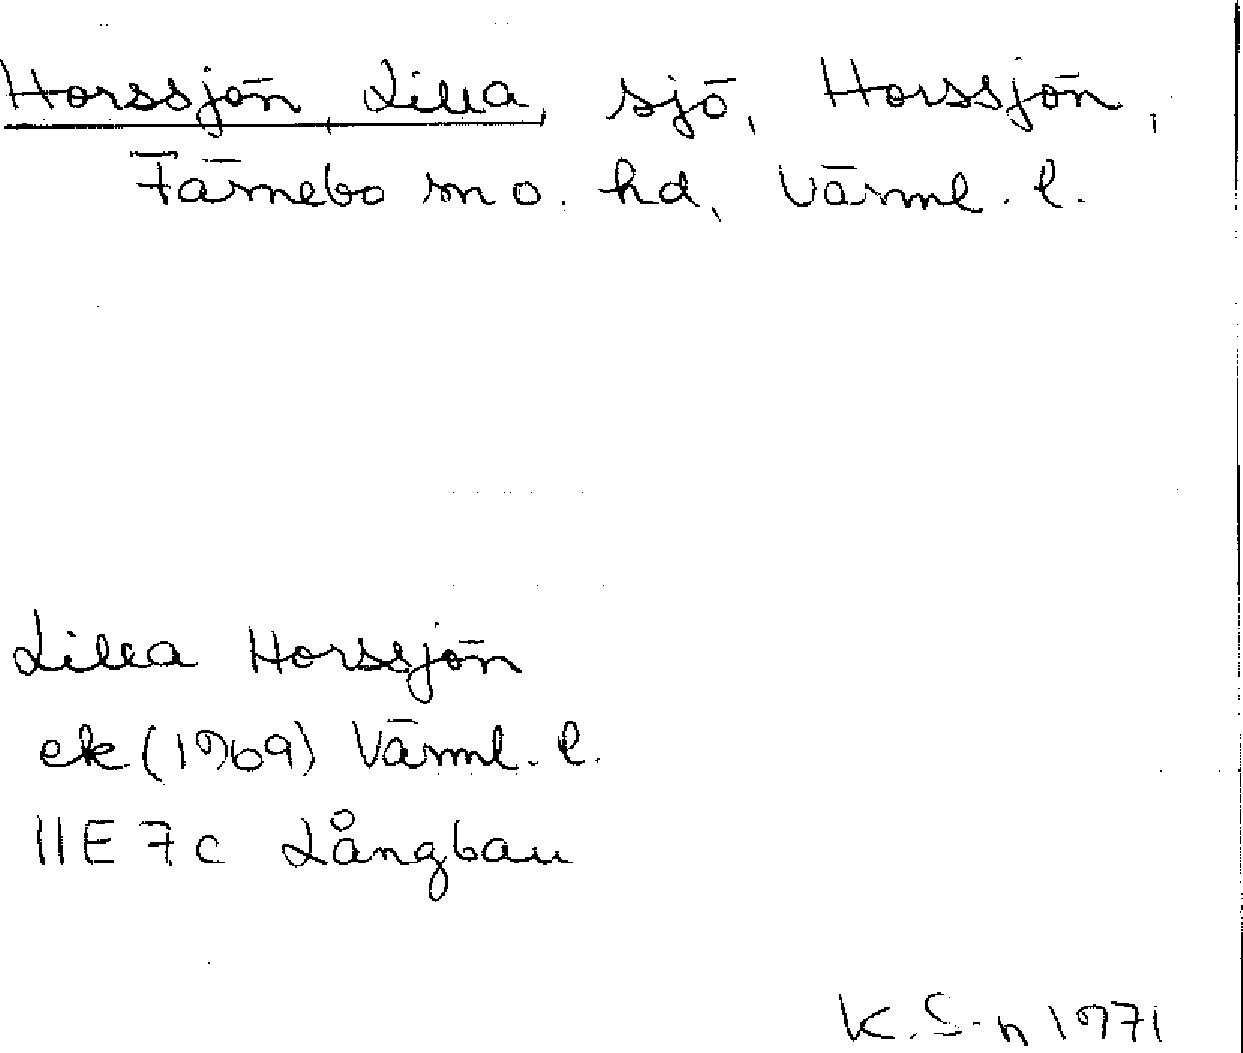 Horssjön, Lilla, sjö, Horssjön,
Färnebo sn o. hd, Värml. l.
Lilla Horssjön
ek (1969) Värml. l.
11E 7c Långban
K. S-n 1971